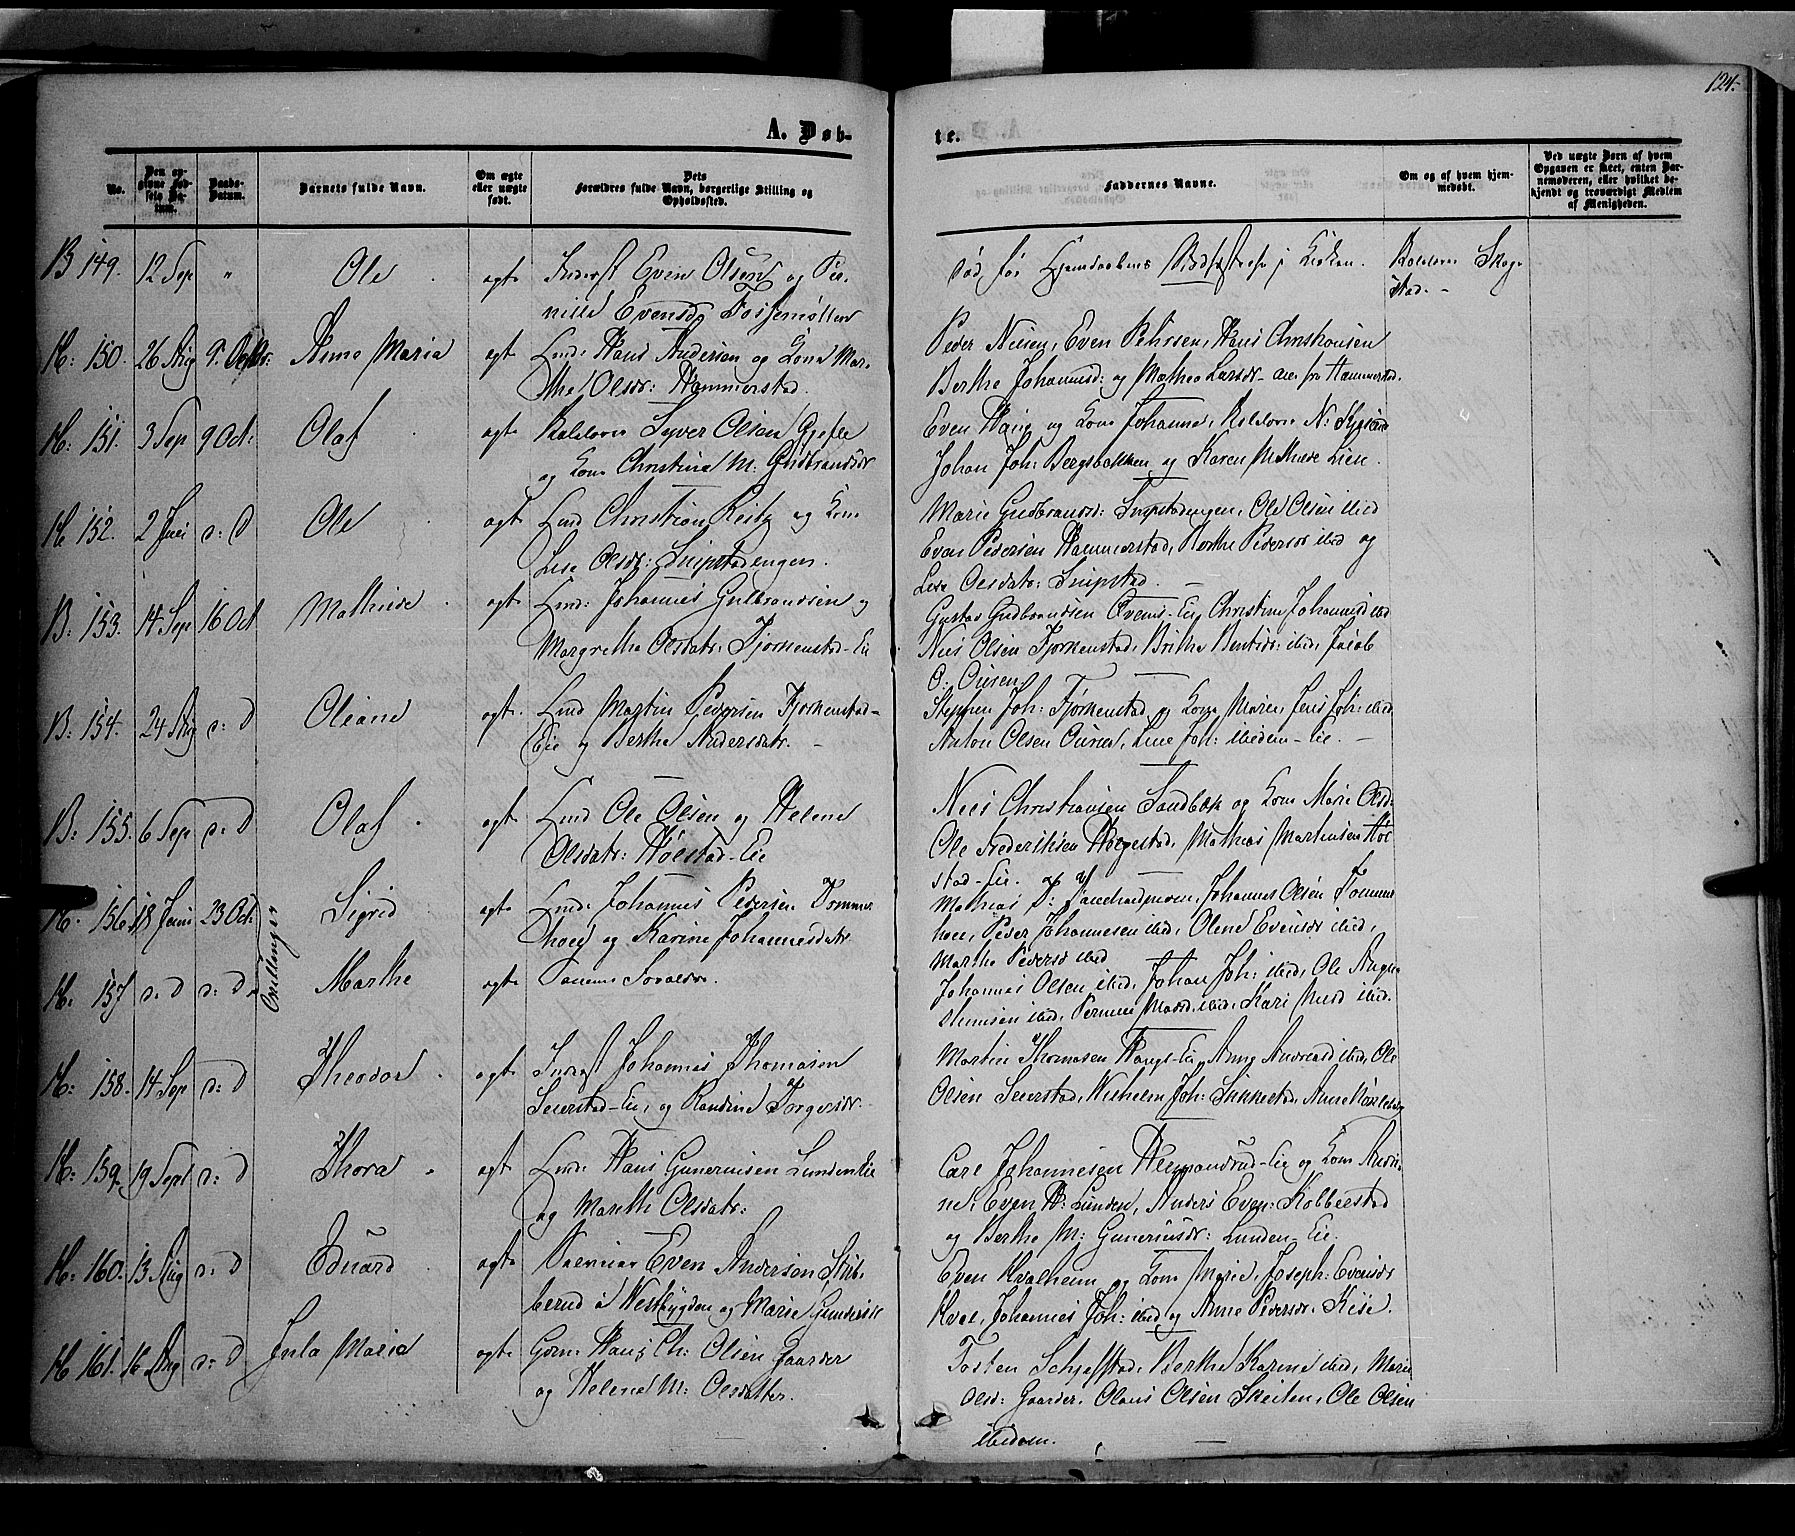 124.
A. Døb-
te.
No.
Den opgivne Fødsels Datum.
Daabs-Datum.
Barnets fulde Navn.
Om ægte eller uægte født.
Dets Forældres fulde Navn, borgerlige Stilling og Opholdssted.
Faddernes Navne.
Om og af hvem hjemmedøbt.
Ved uægte Børn af hvem Opgaven er skeet, enten Barnemoderen, eller hvilket bekjendt og troværdigt Medlem af Menigheden.
B 149. 12 Sep " Ole ægte Inderst Even Olsen og Per-
nille Evensd. Fossemøllen
død før Hjemdaabens Stadfæstelse i Kirken.
Kirkesr. Skog-
stad. -
H: 150. 26 Aug 9. Octbr. Anne Maria ægt Hans Andersen og Kone Mar-
the Olsdr: Hammerstad.
Peder Nilsen, Even Pehrsen, Hans Christiansen
Berthe Johannesd: og Mathea Larsdr - alle fra Hammerstad.
H: 151. 3 Sep 9 Oct: Olaf ægt Syver Olsen Gjefle
og Kone Christina M: Gudbrandsdr
Even Haug og Kone Johanne,
Johan Joh: Bergsbakken og Karen Mathilde Lien.
H 152. 2 Juli d: D Ole ægt Christian Reitz og Kone
Lise Olsdtr: Snipstadengen.
Marie Gudbrandsd: Snipstadengen, Ole Olsen ibid
Even Pedersen Hammerstad, Berthe Pedersdr ibid og
Lise Olsdatr: Snipstad. -
B: 153. 14 Sep 16 Oct Mathilde ægt Johannes Gulbrandsen og
Margrethe Olsdatr: Fjorkenstad-Eie
Gustav Gudbrandsen Ovens-Eie, Christine Johannesd ibid
Nils Olsen Fjorkenstad, Brithe Bentsdr: ibid, Jacob
O. Ourens
B: 154. 24 Aug d: D Oliane ægt. Martin Pedersen Fjorkenstad-
Eie og Berthe Andersdatr. -
Steffen Joh: Fjorkenstad og Kone Maren, Jens Joh: ibid.
Anton Olsen Ouren, Line Joh: ibidem-Eie. -
B: 155. 6 Sep d: D Olaf. ægt Ole Olsen og Helene
Olsdatr: Hoelstad-Eie
Niels Christiansen Sandbæk og Kone Marie Olsd:
Ole Frederiksen Helgestad, Mathias Martinsen Hoel-
stad-Eie.
H. 156. 18 Juni 23 Oct: Sigrid ægt Johannes Pedersen Tommer-
hoel og Karine Johannesdatr
Mathias P: , Johannes Olsen Tommer-
hoel, Peder Johannesen ibid, Olene Evensdr ibid,
Marthe Pedersd ibid
Tvillinger
H: 157 d: D d: D Marthe ægt Samme Forældre.
Johannes Olsen ibid, Johan Joh: ibid, Ole Amun-
dsen ibid, Pernille Matsd. ibid, Kari ibid.
H: 158. 14 Sep d: D Theodor. ægt Inderst Johannes Thomasen
Seierstad-Eie, og Randine Torgersdr.
Martin Thomasen Haugs-Eie, Anne Andersd ibid, Ole
Olsen Seierstad, Wilhelm Joh: Sikkestad, Anne
H: 159. 19 Sept d: D Thora. ægt Hans Guneriusen Lunden Eie
og Marthe Olsdatr:
Carl Johannesen Hermandrud-Eie og Kone Andri-
ne, Even H: Lunden, Anders Even: Kolbeestad
og Berthe M: Guneriusdr: Lunden-Eie.
H: 160. 13 Aug d: D Eduard. ægt Even Andersen Stub-
berud i Westbygden og Marie Gundersd
Even Hvalheim og Kone Marie, Joseph: Evensdr
Hval, Johannes Joh: ibid og Anne Pedersdr. Kise.
H 161. 16 Aug d: D Jula Maria ægt. Hans Ch: Olsen Gaarder
og Helene M: Olsdatter.
Tosten Schjefstad, Berthe Karine ibid, Marie
Olsd: Gaarder, Olaus Olsen Skeiten, Ole Olsen
ibidem.